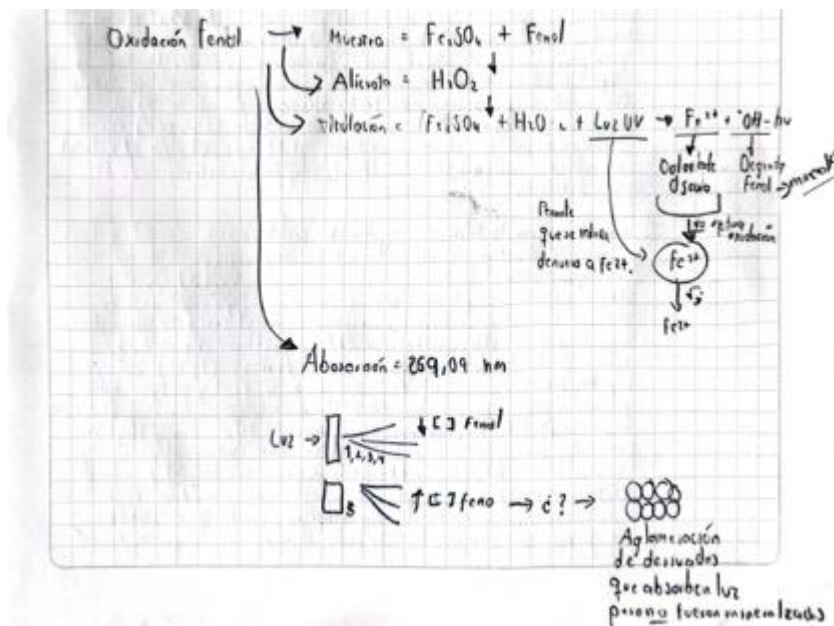 Oxidación Fenol → Muestra = Fe₂SO₄ + Fenol
Alicuota = H₂O₂
Titulación = Fe₂SO₄ + H₂O₂ + Luz UV → Fe³⁺ + ·OH - hv
Degrada
Fenol →
Permite
que se
de nuevo a Fe²⁺.
oxidación
Fe³⁺
Fe²⁺
Absorción = 269,09 nm
Luz → 1, 2, 3, 4 ↓ [ ] Fenol
5 ↑ [ ] feno → ¿? →
Aglomeración
de derivados
que absorben luz
pero no fueron mineralizados